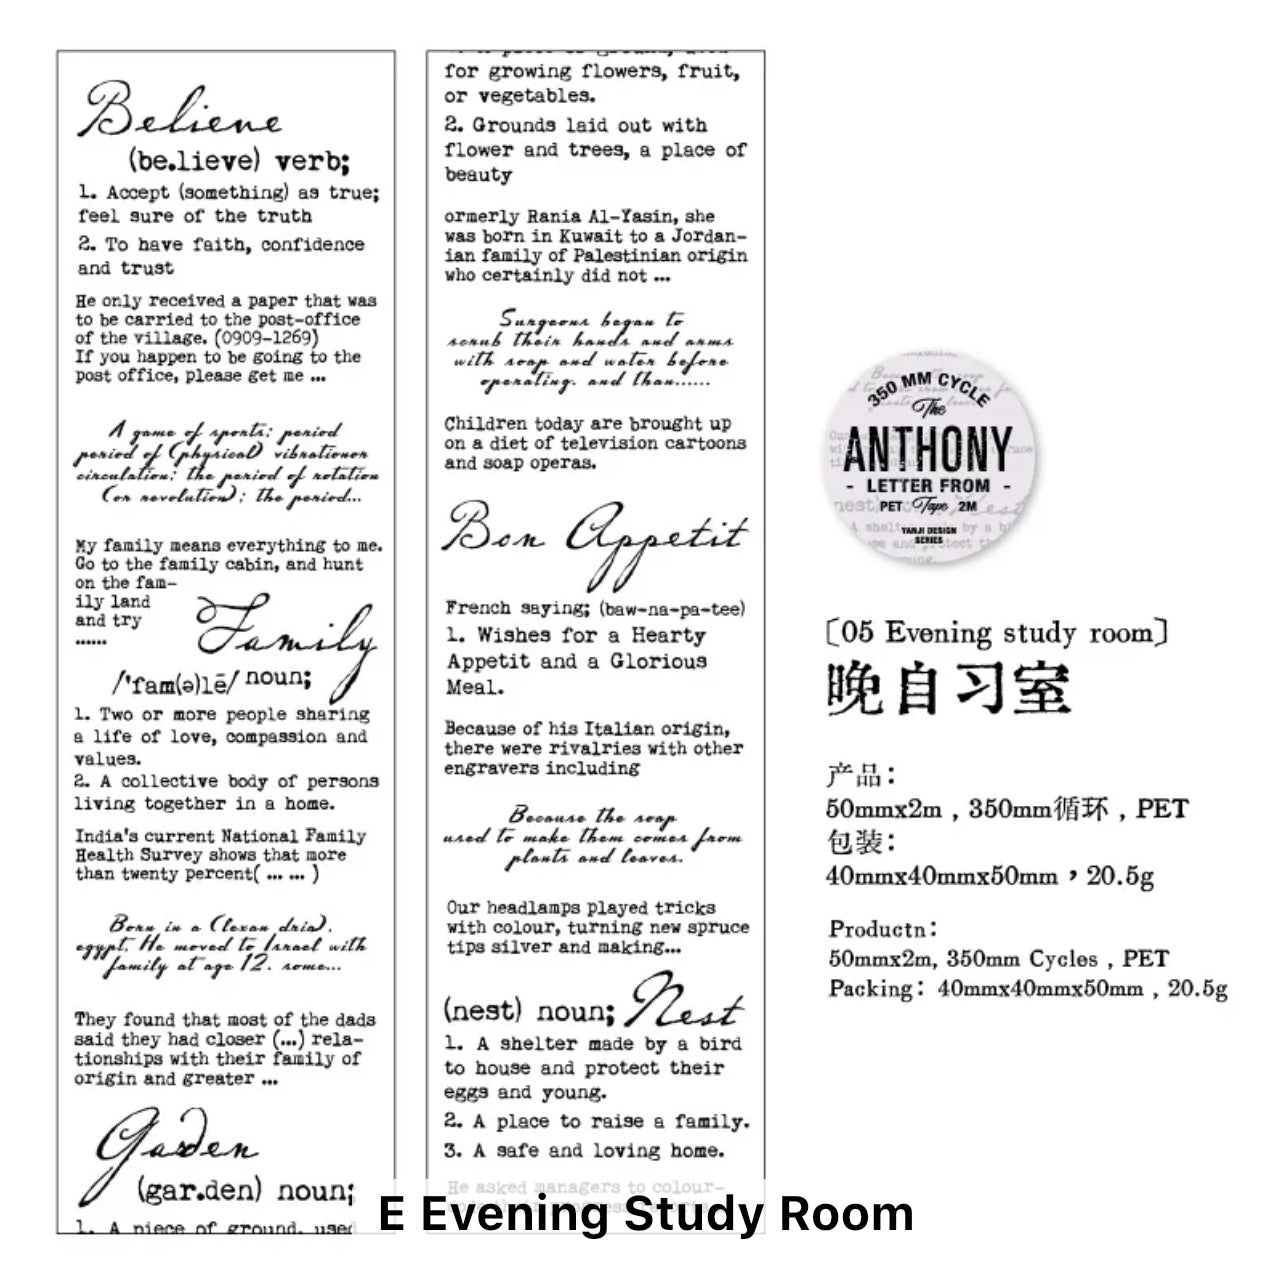 Believe
(be.lieve) verb;
1. Accept (something) as true;
feel sure of the truth
2. To have faith, confidence
and trust
He only received a paper that was
to be carried to the post-office
of the village. (0909-1269)
If you happen to be going to the
post office, please get me ...
A game of sports: period
period of (physical) vibrationor
circulation: the period of rotation
(or revolution); the period...
My family means everything to me.
Go to the family cabin, and hunt
on the fam-
ily land
and try
......
Family
/'fam(ə)lē/ noun;
1. Two or more people sharing
a life of love, compassion and
values.
2. A collective body of persons
living together in a home.
India's current National Family
Health Survey shows that more
than twenty percent( ... ... )
Born in a (lexan dria),
egypt. He moved to Israel with
family at age 12. some...
They found that most of the dads
said they had closer (...) rela-
tionships with their family of
origin and greater ...
Garden
(gar.den) noun;
1. A piece of ground, used
1. A piece of ground, used
for growing flowers, fruit,
or vegetables.
2. Grounds laid out with
flower and trees, a place of
beauty
ormerly Rania Al-Yasin, she
was born in Kuwait to a Jordan-
ian family of Palestinian origin
who certainly did not ...
Surgeons began to
scrub their hands and arms
with soap and water before
operating. and than......
Children today are brought up
on a diet of television cartoons
and soap operas.
Bon Appetit
French saying; (baw-na-pa-tee)
1. Wishes for a Hearty
Appetit and a Glorious
Meal.
Because of his Italian origin,
there were rivalries with other
engravers including
Because the soap
used to make them comes from
plants and leaves.
Our headlamps played tricks
with colour, turning new spruce
tips silver and making...
(nest) noun; Nest
1. A shelter made by a bird
to house and protect their
eggs and young.
2. A place to raise a family.
3. A safe and loving home.
He asked managers to colour-
350 MM CYCLE
The
ANTHONY
- LETTER FROM -
PET Tape 2M
YANJI DESIGN
SERIES
〔05 Evening study room〕
晚自习室
产品：
50mmx2m , 350mm循环 , PET
包装：
40mmx40mmx50mm , 20.5g
Productn:
50mmx2m, 350mm Cycles , PET
Packing: 40mmx40mmx50mm , 20.5g
E Evening Study Room